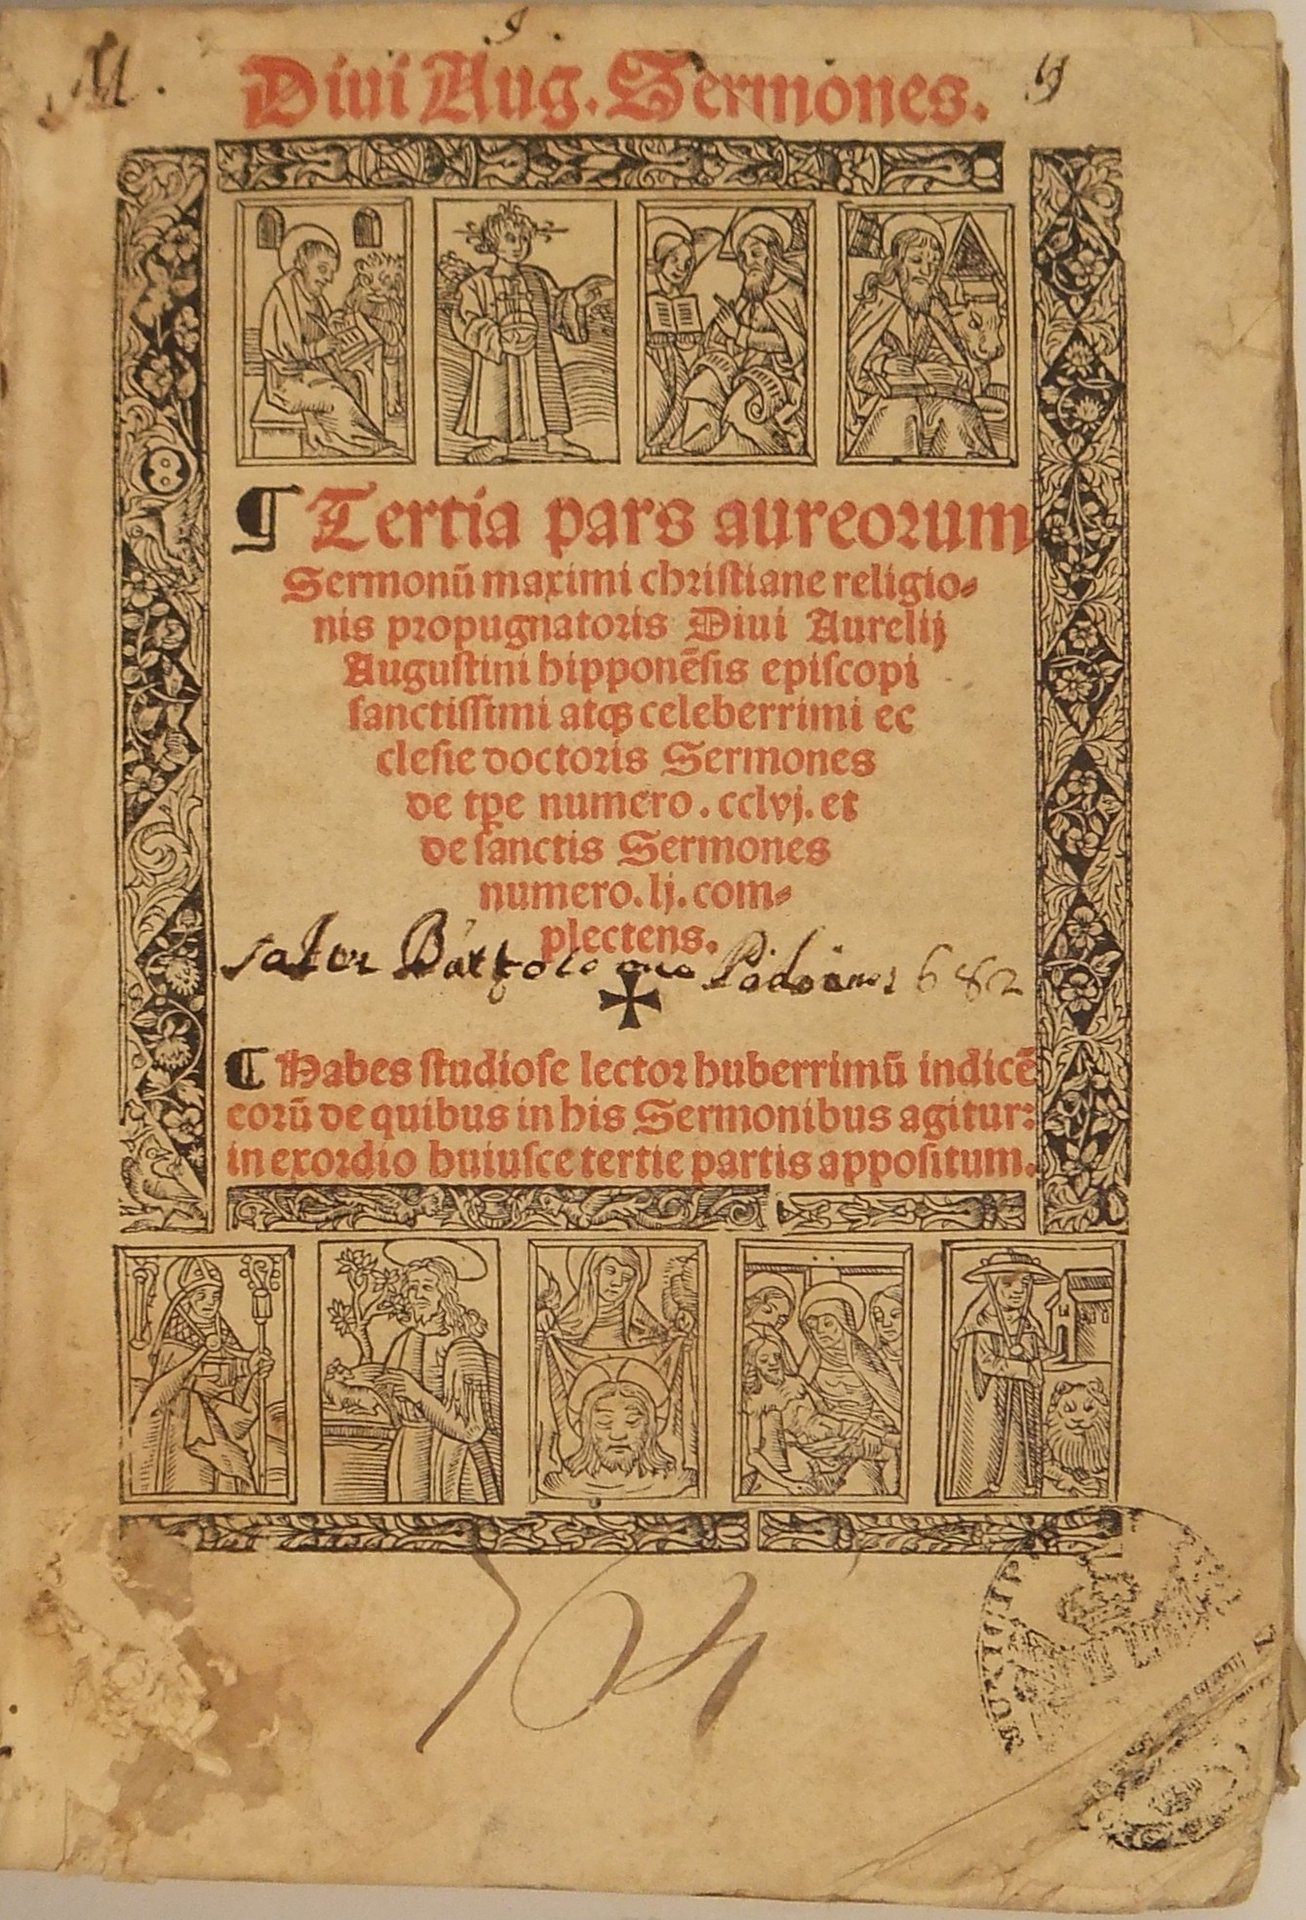 Diui Aug. Sermones.
¶ Tertia pars aureorum
Sermonū maximi christiane religio-
nis propugnatoris Diui Aurelij
Augustini hipponēsis episcopi
sanctissimi atqꝫ celeberrimi ec
clesie doctoris Sermones
de tꝑe numero. cclvj. et
de sanctis Sermones
numero. lj. com-
plectens.
682
¶ Habes studiose lector huberrimū indicē
eorū de quibus in his Sermonibus agitur:
in exordio huiusce tertie partis appositum.